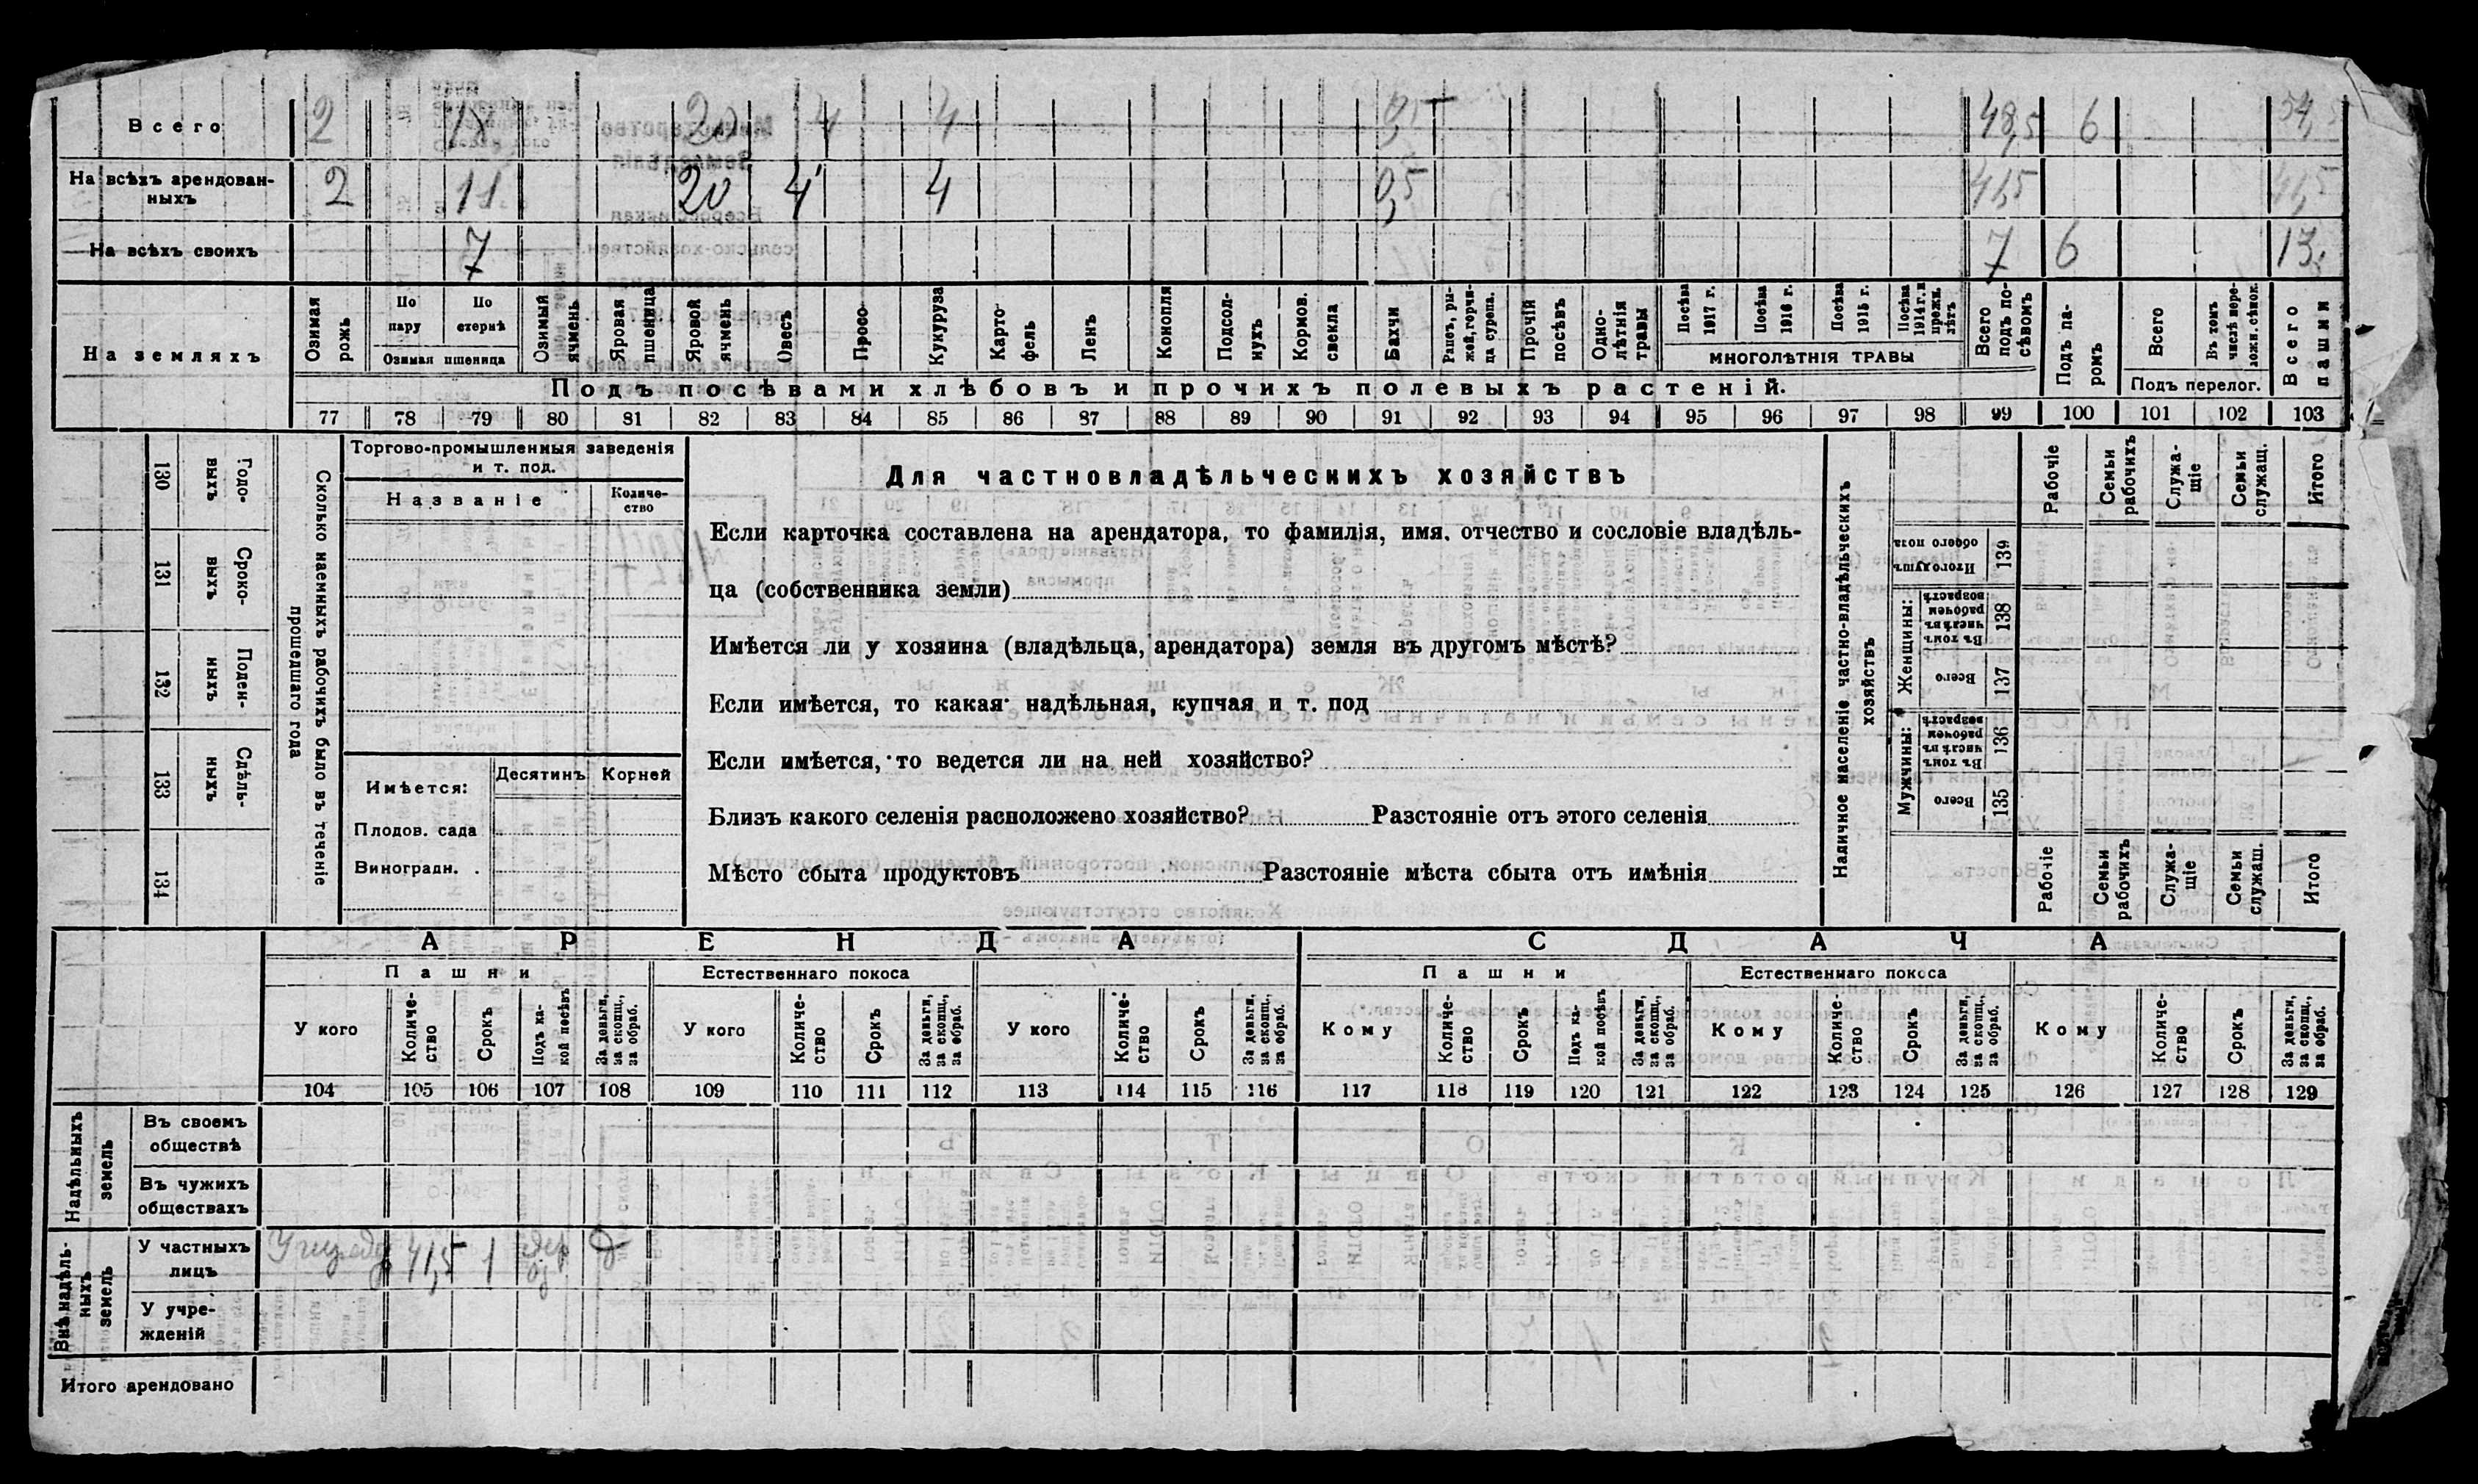 Всего 2 18 20 4 4 0,5 48,5 6 54,5
На всѣхъ арендован-
ныхъ 2 11 20 4 4 0,5 41,5 41,5
На всѣхъ своихъ 7 7 6 13
На земляхъ
Озимая рожь
По пару
По стернѣ
Озимая пшеница
Озимый ячмень
Яровая пшеница
Яровой ячмень
Овесъ
Просо
Кукуруза
Карто-
фель
Ленъ
Конопля
Подсол-
нухъ
Кормов. свекла
Бахчи
Рапсъ, ры-
жей, горчи-
ца сурепа.
Прочій посѣвъ
Одно-
лѣтнія травы
Посѣва 1917 г.
Посѣва 1916 г.
Посѣва 1915 г.
Посѣва 1914 г. и прежн. лѣтъ
МНОГОЛѢТНІЯ ТРАВЫ
Всего подъ по-
сѣвомъ
Подъ па-
ромъ
Всего
Въ томъ числѣ пере-
ложн. сѣнок.
Подъ перелог.
Всего пашни
Подъ посѣвами хлѣбовъ и прочихъ полевыхъ растеній.
77 78 79 80 81 82 83 84 85 86 87 88 89 90 91 92 93 94 95 96 97 98 99 100 101 102 103
130 Годо-
выхъ
131 Сроко-
выхъ
132 Поден-
ныхъ
133 Сдѣль-
ныхъ
134
Сколько наемныхъ рабочихъ было въ теченіе
прошедшаго года
Торгово-промышленныя заведенія
и т. под.
Названіе
Количе-
ство
Имѣется:
Десятинъ
Корней
Плодов. сада
Виноградн. .
Для частновладѣльческихъ хозяйствъ
Если карточка составлена на арендатора, то фамилія, имя. отчество и сословіе владѣль-
ца (собственника земли)
Имѣется ли у хозяина (владѣльца, арендатора) земля въ другомъ мѣстѣ?
Если имѣется, то какая надѣльная, купчая и т. под
Если имѣется, то ведется ли на ней хозяйство?
Близъ какого селенія расположено хозяйство? Разстояніе отъ этого селенія
Мѣсто сбыта продуктовъ Разстояніе мѣста сбыта отъ имѣнія
Наличное населеніе частно-владѣльческихъ
хозяйствъ
Рабочіе
Семьи рабочихъ
Служа-
щіе
Семьи служащ.
Итого
Итого душъ обоего пола 139
Женщины:
Въ томъ числѣ въ рабочемъ возрастѣ 138
Всего 137
Мужчины:
Въ томъ числѣ въ рабочемъ возрастѣ 136
Всего 135
Рабочіе
Семьи рабочихъ
Служа-
щіе
Семьи служащ.
Итого
АРЕНДА
СДАЧА
Пашни
Естественнаго покоса
Пашни
Естественнаго покоса
У кого
Количе-
ство
Срокъ
Подъ ка-
кой посѣвъ
За деньги, за скопщ., за обраб.
У кого
Количе-
ство
Срокъ
За деньги, за скопщ., за обраб.
У кого
Количе-
ство
Срокъ
За деньги, за скопщ., за обраб.
Кому
Количе-
ство
Срокъ
Подъ ка-
кой посѣвъ
За деньги, за скопщ., за обраб.
Кому
Количе-
ство
Срокъ
За деньги, за скопщ., за обраб.
Кому
Количе-
ство
Срокъ
За деньги, за скопщ., за обраб.
104 105 106 107 108 109 110 111 112 113 114 115 116 117 118 119 120 121 122 123 124 125 126 127 128 129
Надѣльныхъ
земель
Въ своемъ
обществѣ
Въ чужихъ
обществахъ
Внѣнадѣль-
ныхъ
земель
У частныхъ
лицъ 41,5 1
У учре-
жденій
Итого арендовано